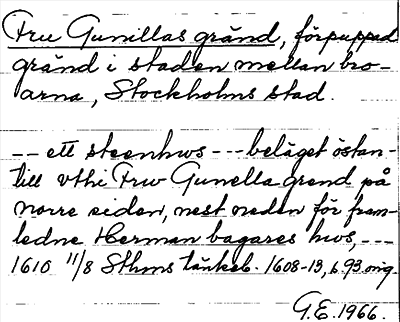 Fru Gunillas gränd, förpuppad
gränd i staden mellan bro-
arna, Stockholms stad.
-- ett steenhws --- beläget östan-
till vthi Frw Gunella grend på
norre siden, nest neden för fram-
ledne Herman bagares hws, ---
1610 11/8 Sthms tänkeb. 1608-13, s. 93 orig.
G.E. 1966.